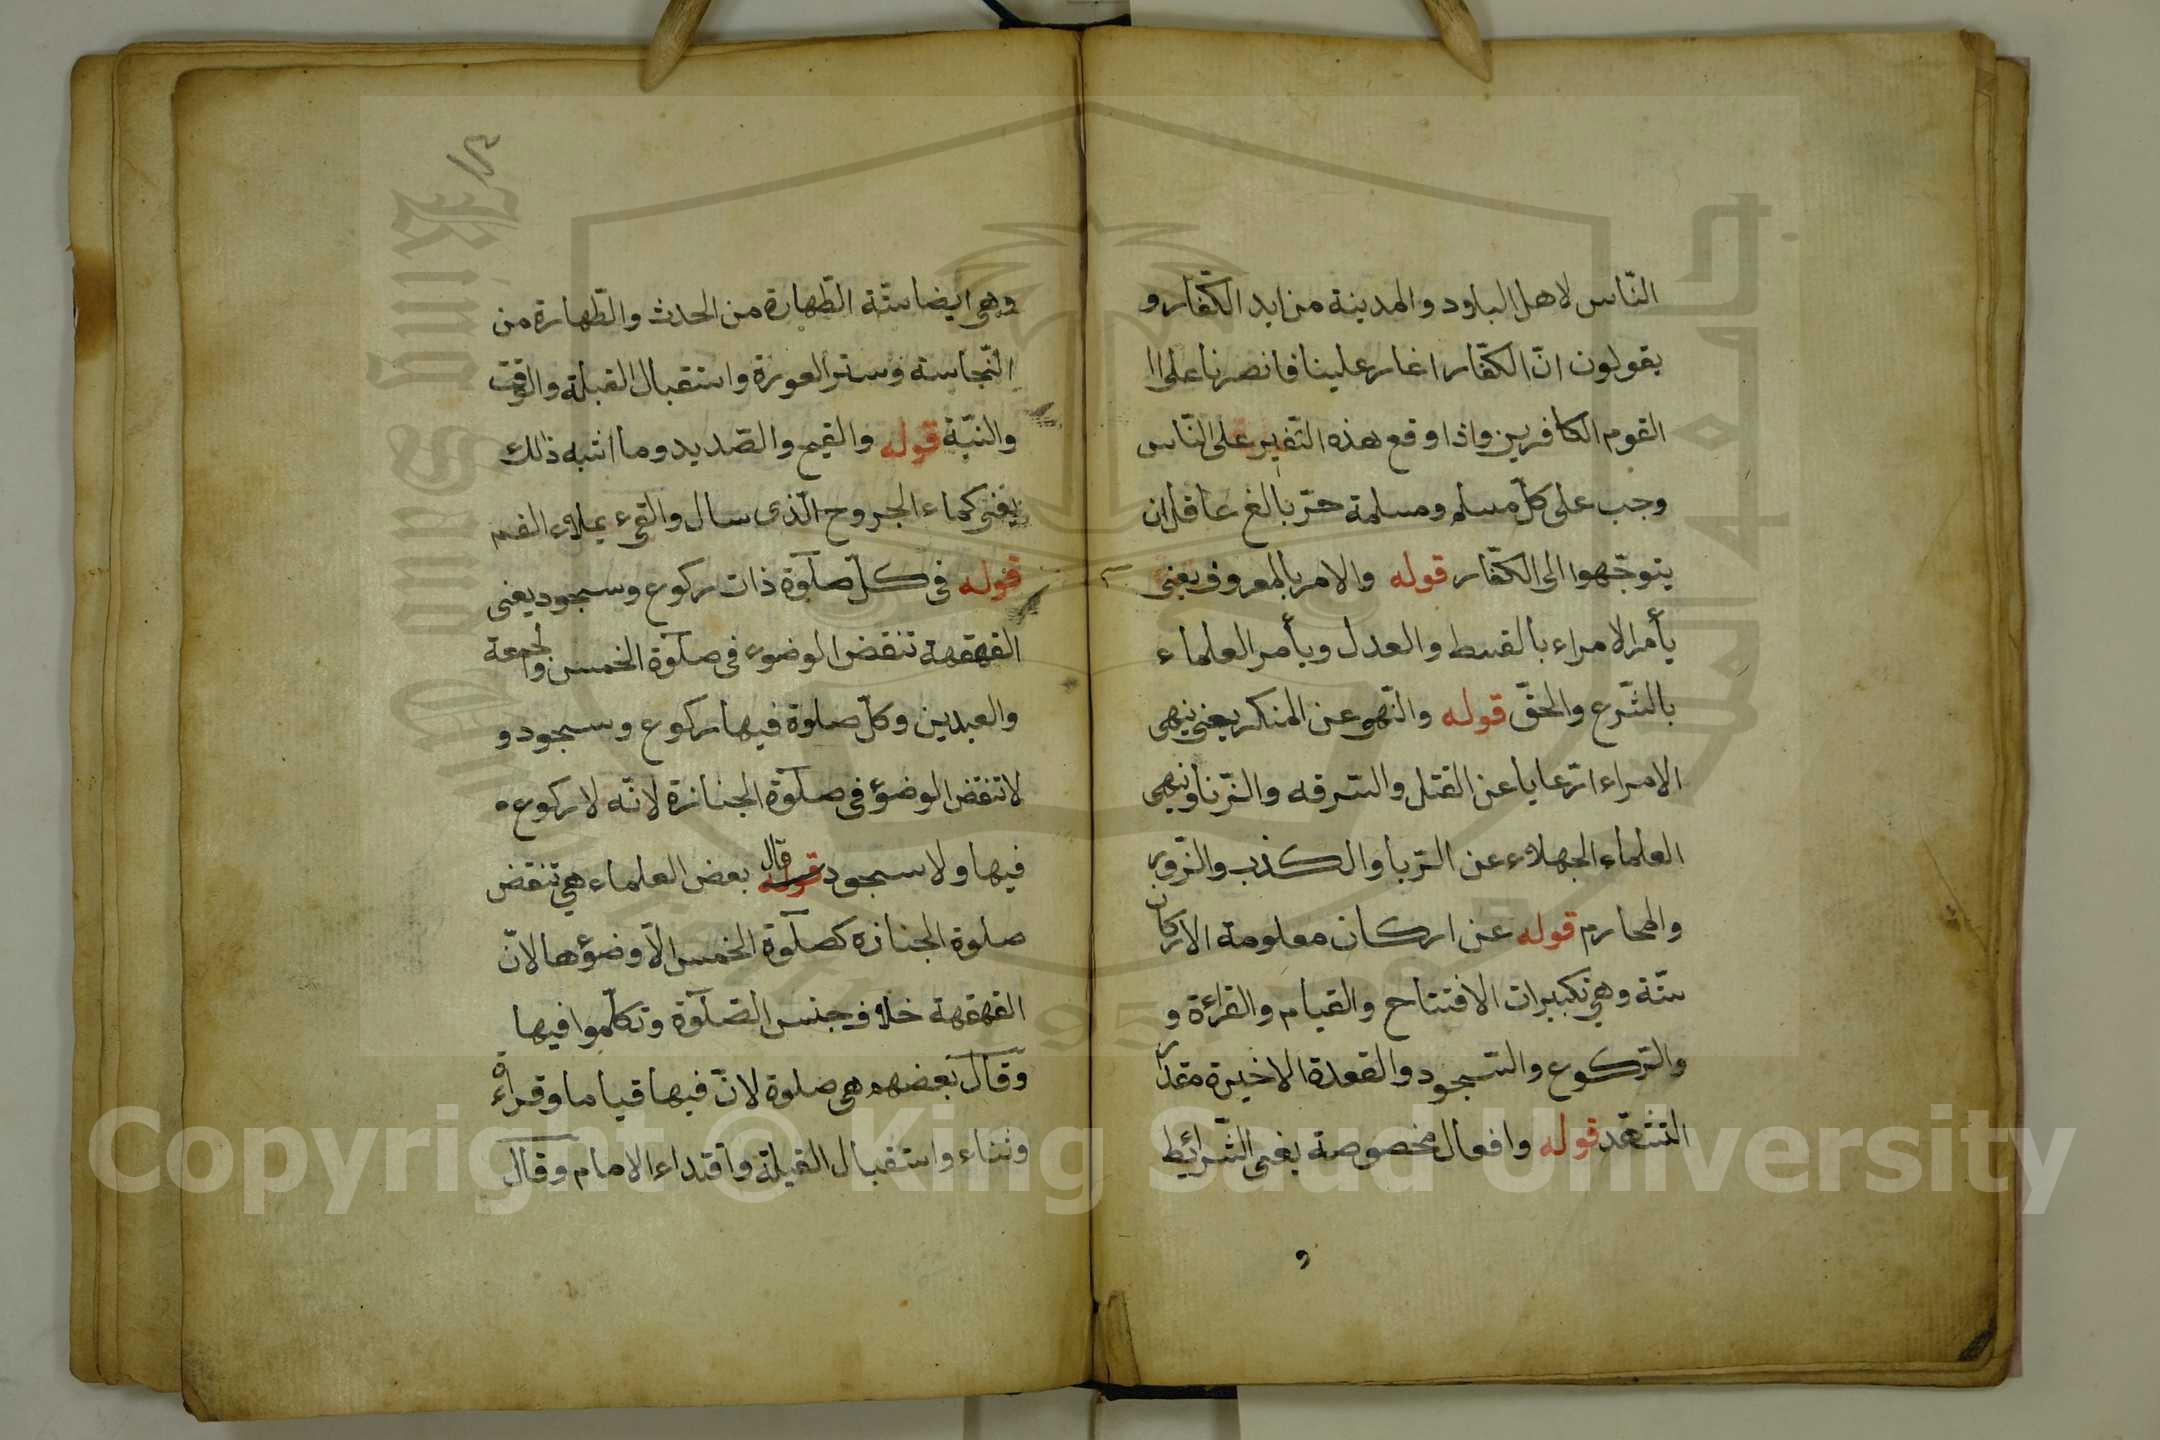 النّاس لاهل البلود والمدينة من ايد الكفّار و
يقولون انّ الكفّار اغار علينا فانصرنا على ا
القوم الكافرين واذا وقع هذه النّفير على النّاس
وجب على كلّ مسلم ومسلمة حرّ بالغ عاقل ان
يتوجّهوا الى الكفّار قوله والامر بالمعروف يعنى
يأمر الامراء بالقسط والعدل ويأمر العلماء
بالشّرع والحقّ قوله والنّهى عن المنكر يعنى ينهى
الامراء الرّعايا عن القتل والسّرقه والزّنا وينهى
العلماء الجهلاء عن الرّبا والكذب والزّور
والمحارم قوله عن اركان معلومة الاركان
ستّة وهى تكبيرات الافتتاح والقيام والقراءة و
والرّكوع والسّجود والقعدة الاخيرة مقدار
التشهّد قوله وافعال مخصوصة يعنى الشّرائط
و
وهى ايضا ستّة الطّهارة من الحدث والطّهارة من
النّجاسة وستر العورة واستقبال القبلة والوقت
والنيّة قوله والقيح والصّديد وما اشبه ذلك
يعنى كماء الجروح الّذى سال والقىء يملاء الفم
قوله فى كلّ صلوة ذات ركوع وسجود يعنى
القهقهة تنقض الوضوء فى صلوة الخمس والجمعة
والعيدين وكلّ صلوة فيها ركوع وسجود و
لا تنقض الوضؤ فى صلوة الجنازة لانّه لا ركوع
فيها ولا سجود قوله قال بعض العلماء هى تنقض
صلوة الجنازة كصلوة الخمس الّا وضؤها لانّ
القهقهة خلاف جنس الصّلوة وتكلّموا فيها
وقال بعضهم هى صلوة لانّ فيها قياما وقراءة
وثناء واستقبال القبلة واقتداء الامام وقال
Copyright © King Saud University